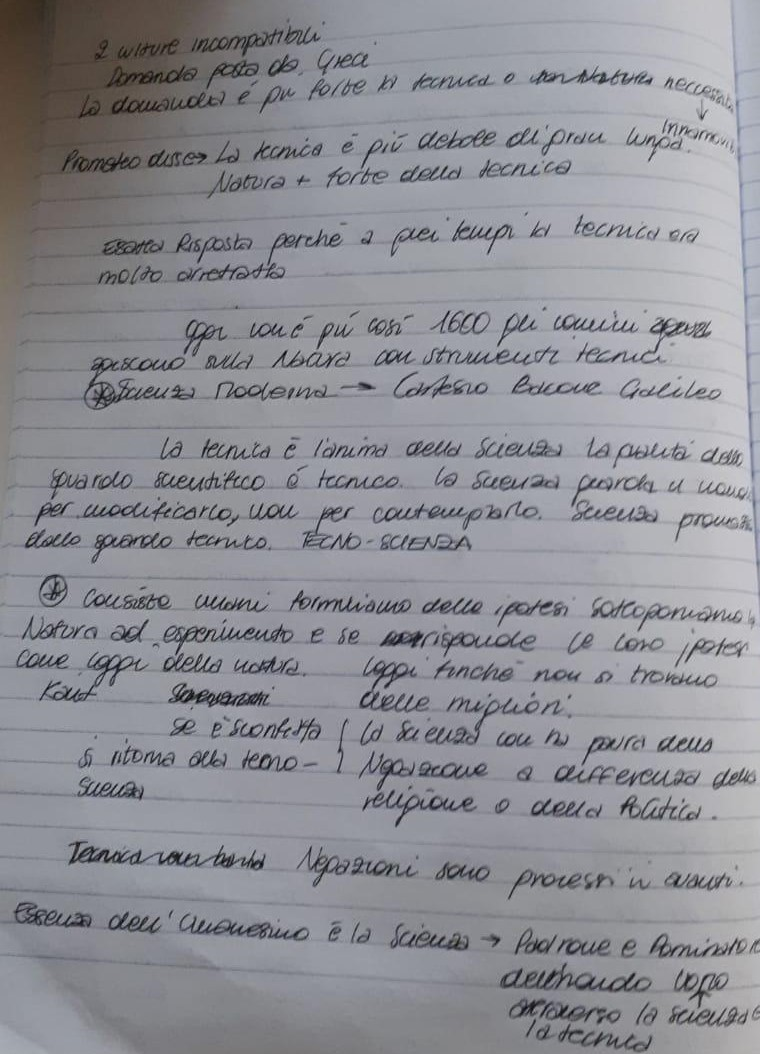 2 culture incompatibili
Domanda posta da Greci
La domanda è più forte la tecnica o Natura neccessità
↓
Innamovi
Prometeo disse→ La tecnica è più debole di gran lunga.
Natura + forte della tecnica
Esatta Risposta perché a quei tempi la tecnica era
molto arretratta
Oggi non è più così 1600 gli uomini
agiscono sulla Natura con strumenti tecnici
* Scienza Moderna → Cartesio Bacone Galileo
La tecnica è l'anima della Scienza la qualità dello
sguardo scientifico è tecnico. La Scienza guarda il mondo
per modificarlo, non per contemplarlo. Scienza promossa
dallo sguardo tecnico. TECNO-SCIENZA
* Consiste uomini formuliamo delle ipotesi sottoponiamo la
Natura ad esperimento e se risponde le loro ipotesi
come leggi della natura. Leggi finché non si trovano
Kant delle migliori.
se è sconfitta La Scienza non ha paura della
si ritorna alla tecno- Negazione a differenza della
scienza religione o della Politica.
Negazioni sono processi in avanti.
Essenza dell'Umanesimo è la Scienza → Padrone e Dominatore
del mondo
attraverso la scienza e
la tecnica